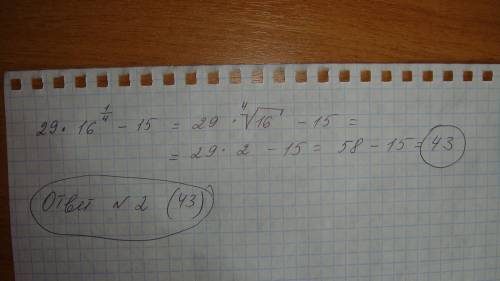 29 · 16^{1/4} − 15 = 29 · ∜16 − 15 =
= 29 · 2 − 15 = 58 − 15 = 43
Ответ №2 (43)